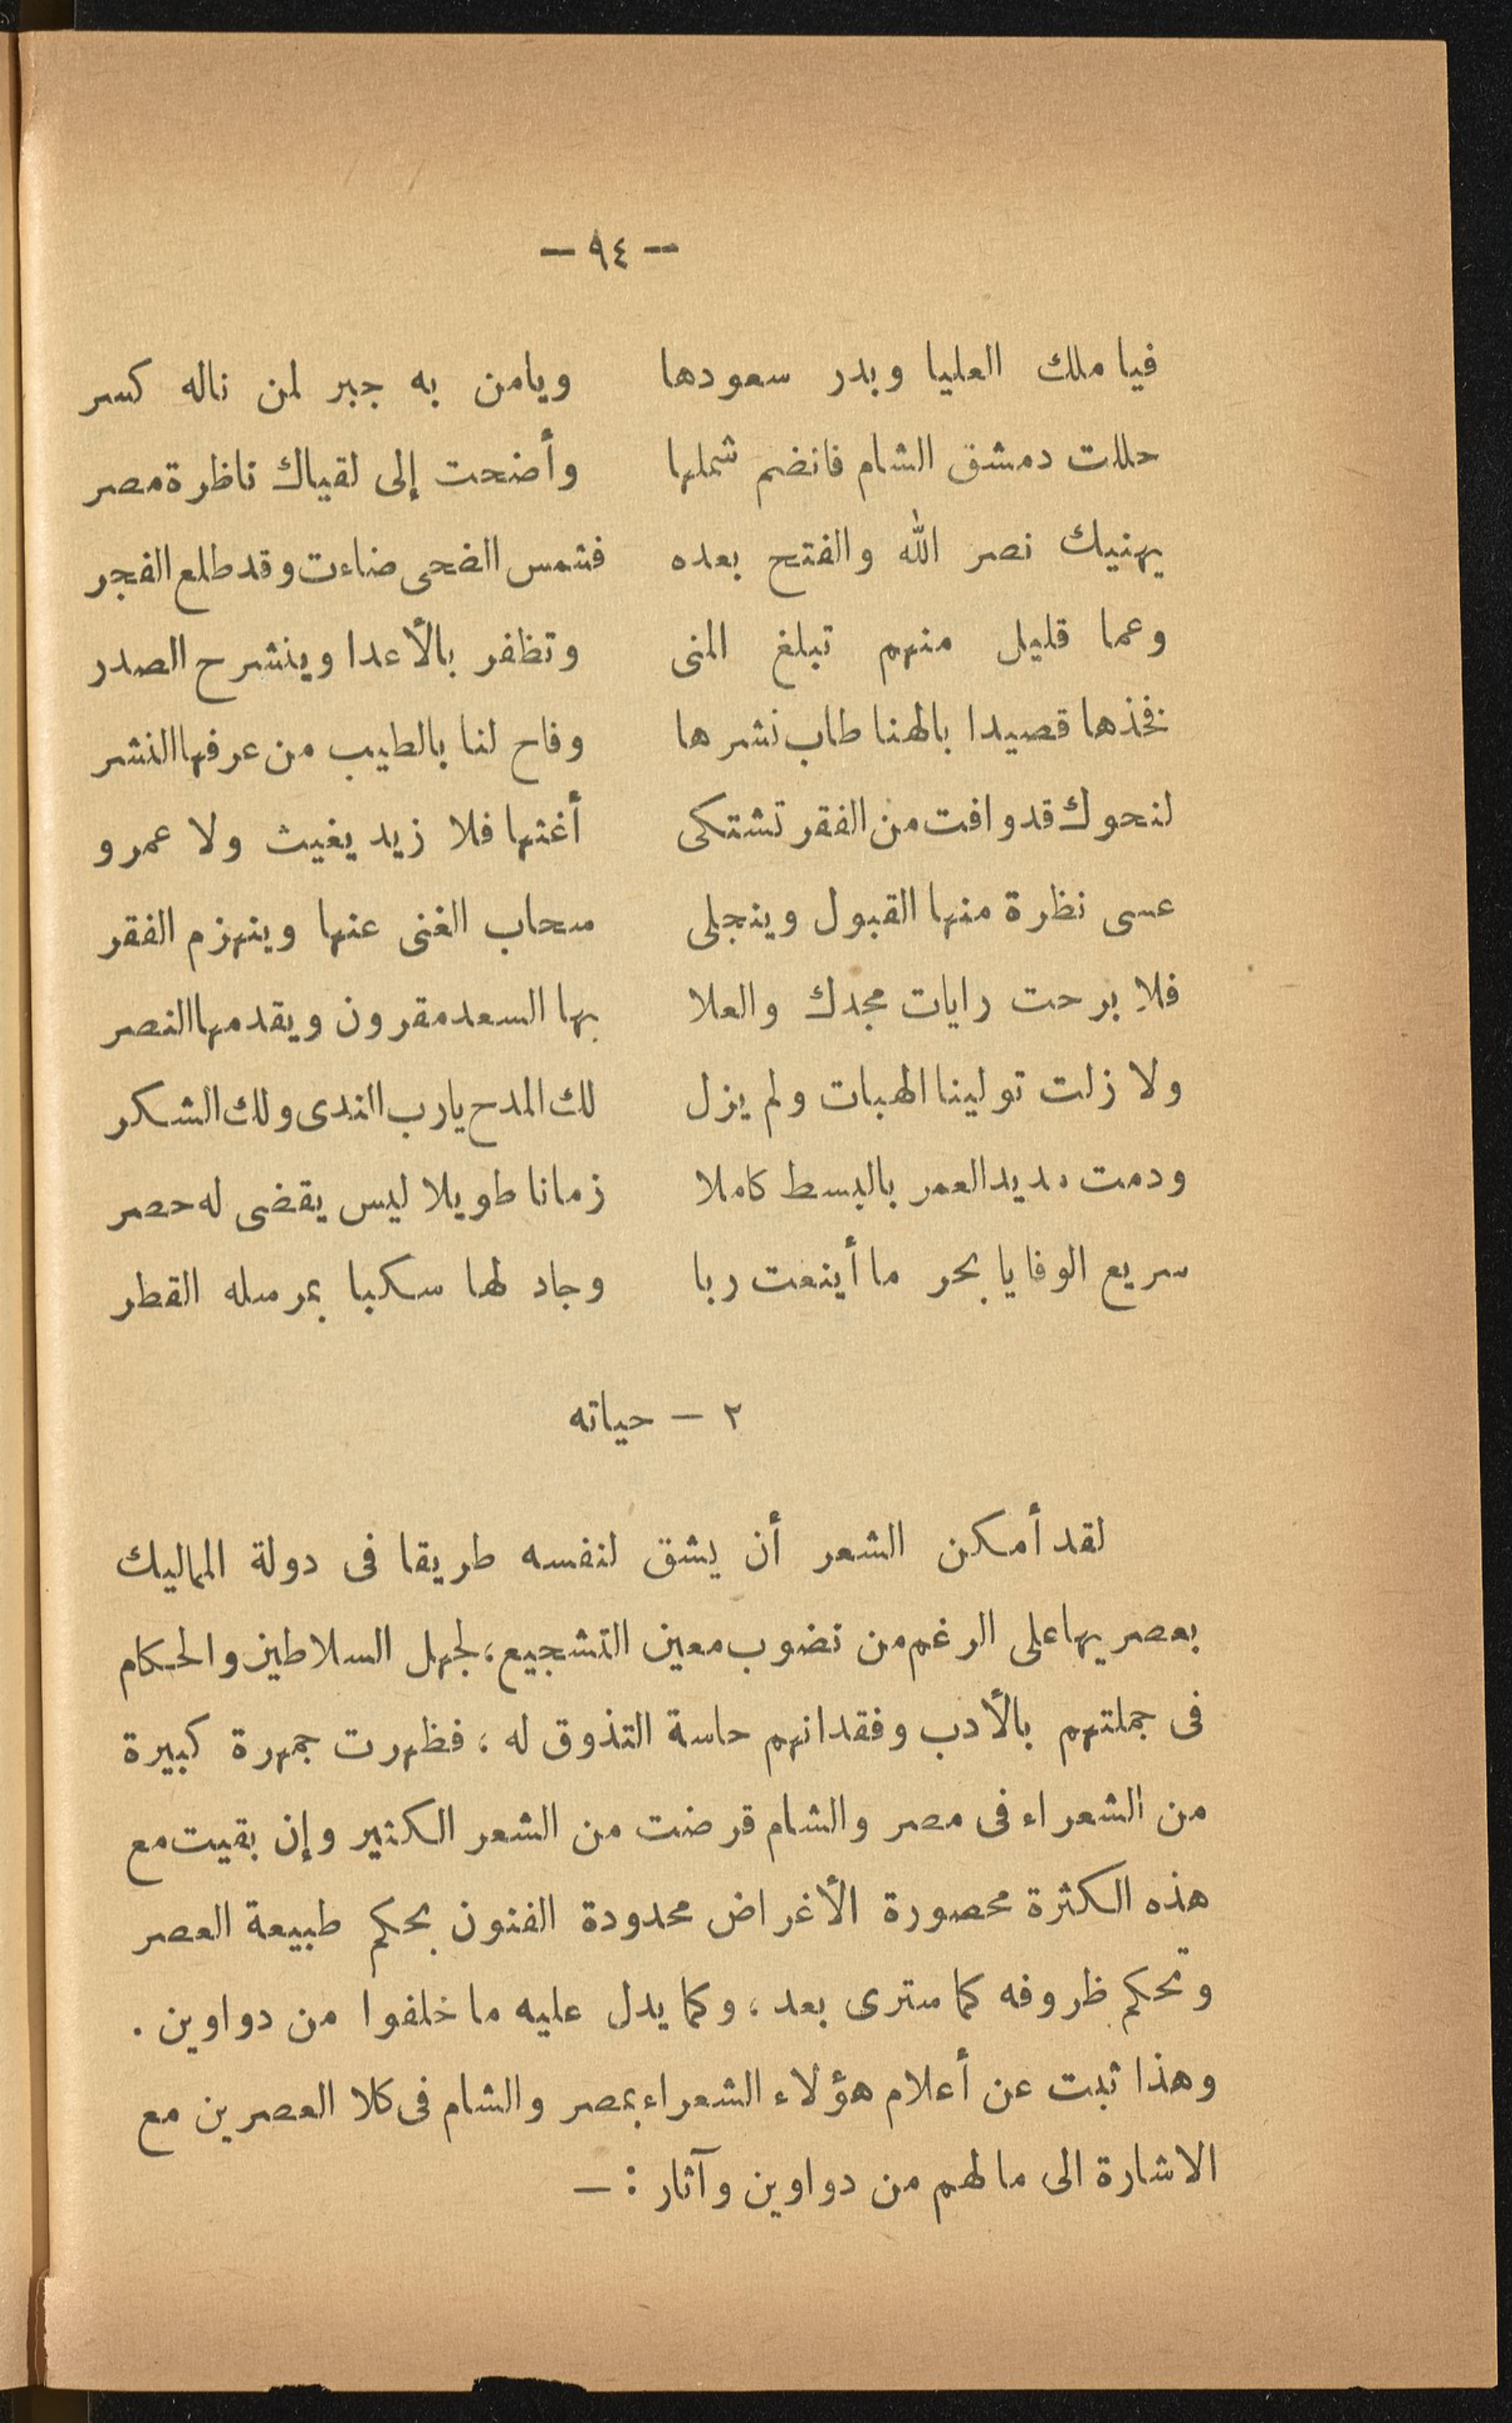 — ٩٤ —
فيا ملك العليا وبدر سعودها ويامن به جبر لمن ناله كسر
حللت دمشق الشام فانضم شملها وأضحت إلى لقياك ناظرة مصر
يهنيك نصر الله والفتح بعده فشمس الضحى ضاءت وقد طلع الفجر
وعما قليل منهم تبلغ المنى وتظفر بالأعدا وينشرح الصدر
فخذها قصيدا بالهنا طاب نشرها وفاح لنا بالطيب من عرفها النشر
لنحوك قد وافت من الفقر تشتكى أغثها فلا زيد يغيث ولا عمرو
عسى نظرة منها القبول وينجلى سحاب الغنى عنها وينهزم الفقر
فلا برحت رايات مجدك والعلا بها السعد مقرون ويقدمها النصر
ولا زلت تولينا الهبات ولم يزل لك المدح يارب الندى ولك الشكر
ودمت مديد العمر بالبسط كاملا زمانا طويلا ليس يقضى له حصر
سريع الوفا يا بحر ما أينعت ربا وجاد لها سكبا بمرسله القطر
٢ — حياته
لقد أمكن الشعر أن يشق لنفسه طريقا فى دولة المماليك
بعصريها على الرغم من نضوب معين التشجيع، لجهل السلاطين والحكام
فى جملتهم بالأدب وفقدانهم حاسة التذوق له، فظهرت جمهرة كبيرة
من الشعراء فى مصر والشام قرضت من الشعر الكثير وإن بقيت مع
هذه الكثرة محصورة الأغراض محدودة الفنون بحكم طبيعة العصر
وتحكم ظروفه كما سترى بعد، وكما يدل عليه ما خلفوا من دواوين .
وهذا ثبت عن أعلام هؤلاء الشعراء بمصر والشام فى كلا العصرين مع
الاشارة الى ما لهم من دواوين وآثار : —